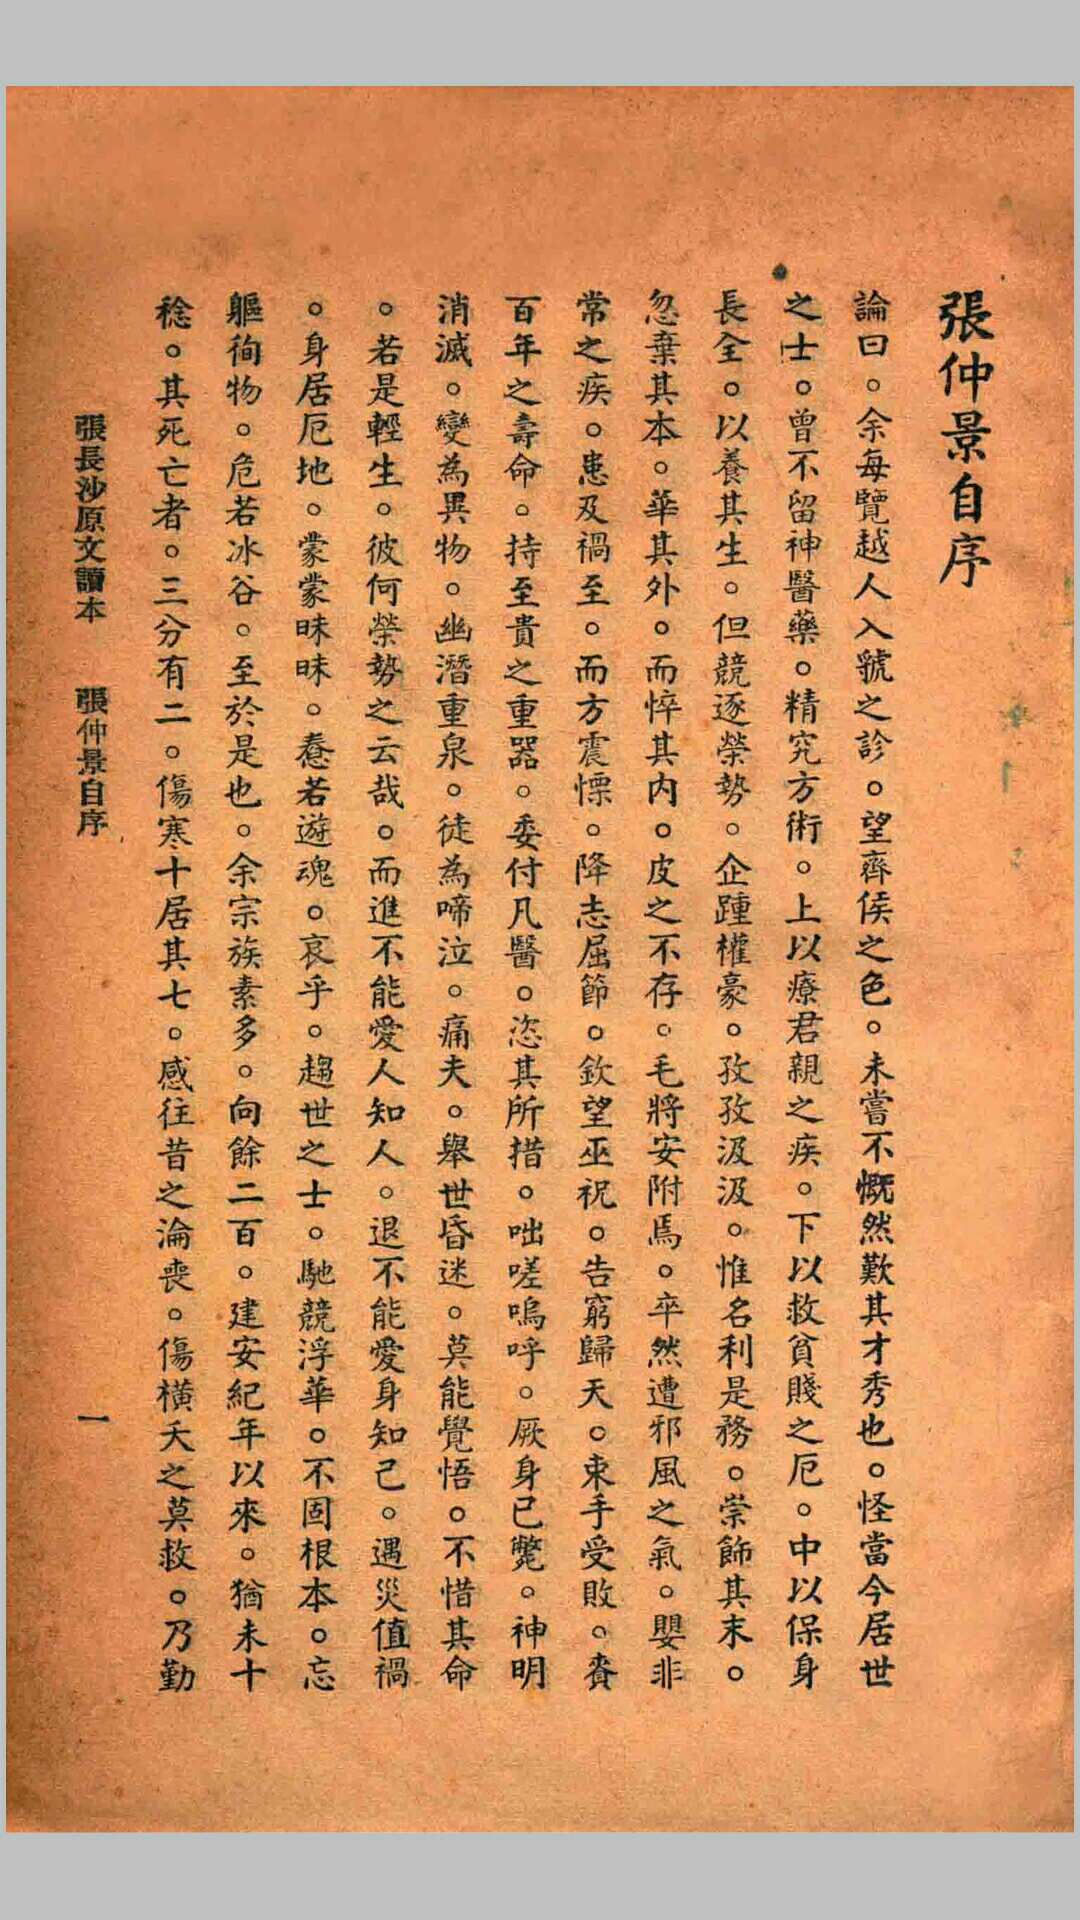 張仲景自序
論曰。余每覽越人入虢之診。望齊侯之色。未嘗不慨然歎其才秀也。怪當今居世
之士。曾不留神醫藥。精究方術。上以療君親之疾。下以救貧賤之厄。中以保身
長全。以養其生。但競逐榮勢。企踵權豪。孜孜汲汲。惟名利是務。崇飾其末。
忽棄其本。華其外。而悴其內。皮之不存。毛將安附焉。卒然遭邪風之氣。嬰非
常之疾。患及禍至。而方震慄。降志屈節。欽望巫祝。告窮歸天。束手受敗。賫
百年之壽命。持至貴之重器。委付凡醫。恣其所措。咄嗟嗚呼。厥身已斃。神明
消滅。變為異物。幽潛重泉。徒為啼泣。痛夫。舉世昏迷。莫能覺悟。不惜其命
。若是輕生。彼何榮勢之云哉。而進不能愛人知人。退不能愛身知己。遇災值禍
。身居厄地。蒙蒙昧昧。惷若遊魂。哀乎。趨世之士。馳競浮華。不固根本。忘
軀徇物。危若冰谷。至於是也。余宗族素多。向餘二百。建安紀年以來。猶未十
稔。其死亡者。三分有二。傷寒十居其七。感往昔之淪喪。傷橫夭之莫救。乃勤
張長沙原文讀本 張仲景自序 一